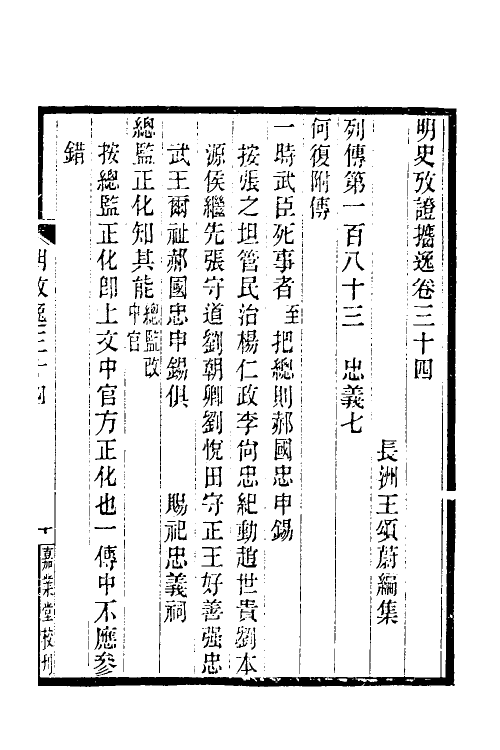 明史攷證攟逸卷三十四
長洲王頌蔚編集
列傳第一百八十三　忠義七
何復附傳
一時武臣死事者至把總則郝國忠申錫
按張之坦管民治楊仁政李尙忠紀動趙世貴劉本
源侯繼先張守道劉朝卿劉悅田守正王好善强忠
武王爾祉郝國忠申錫俱　　賜祀忠義祠
總監正化知其能總監改中官
按總監正化卽上文中官方正化也一傳中不應參
錯
明攷逸三十四
一
嘉業堂校刊